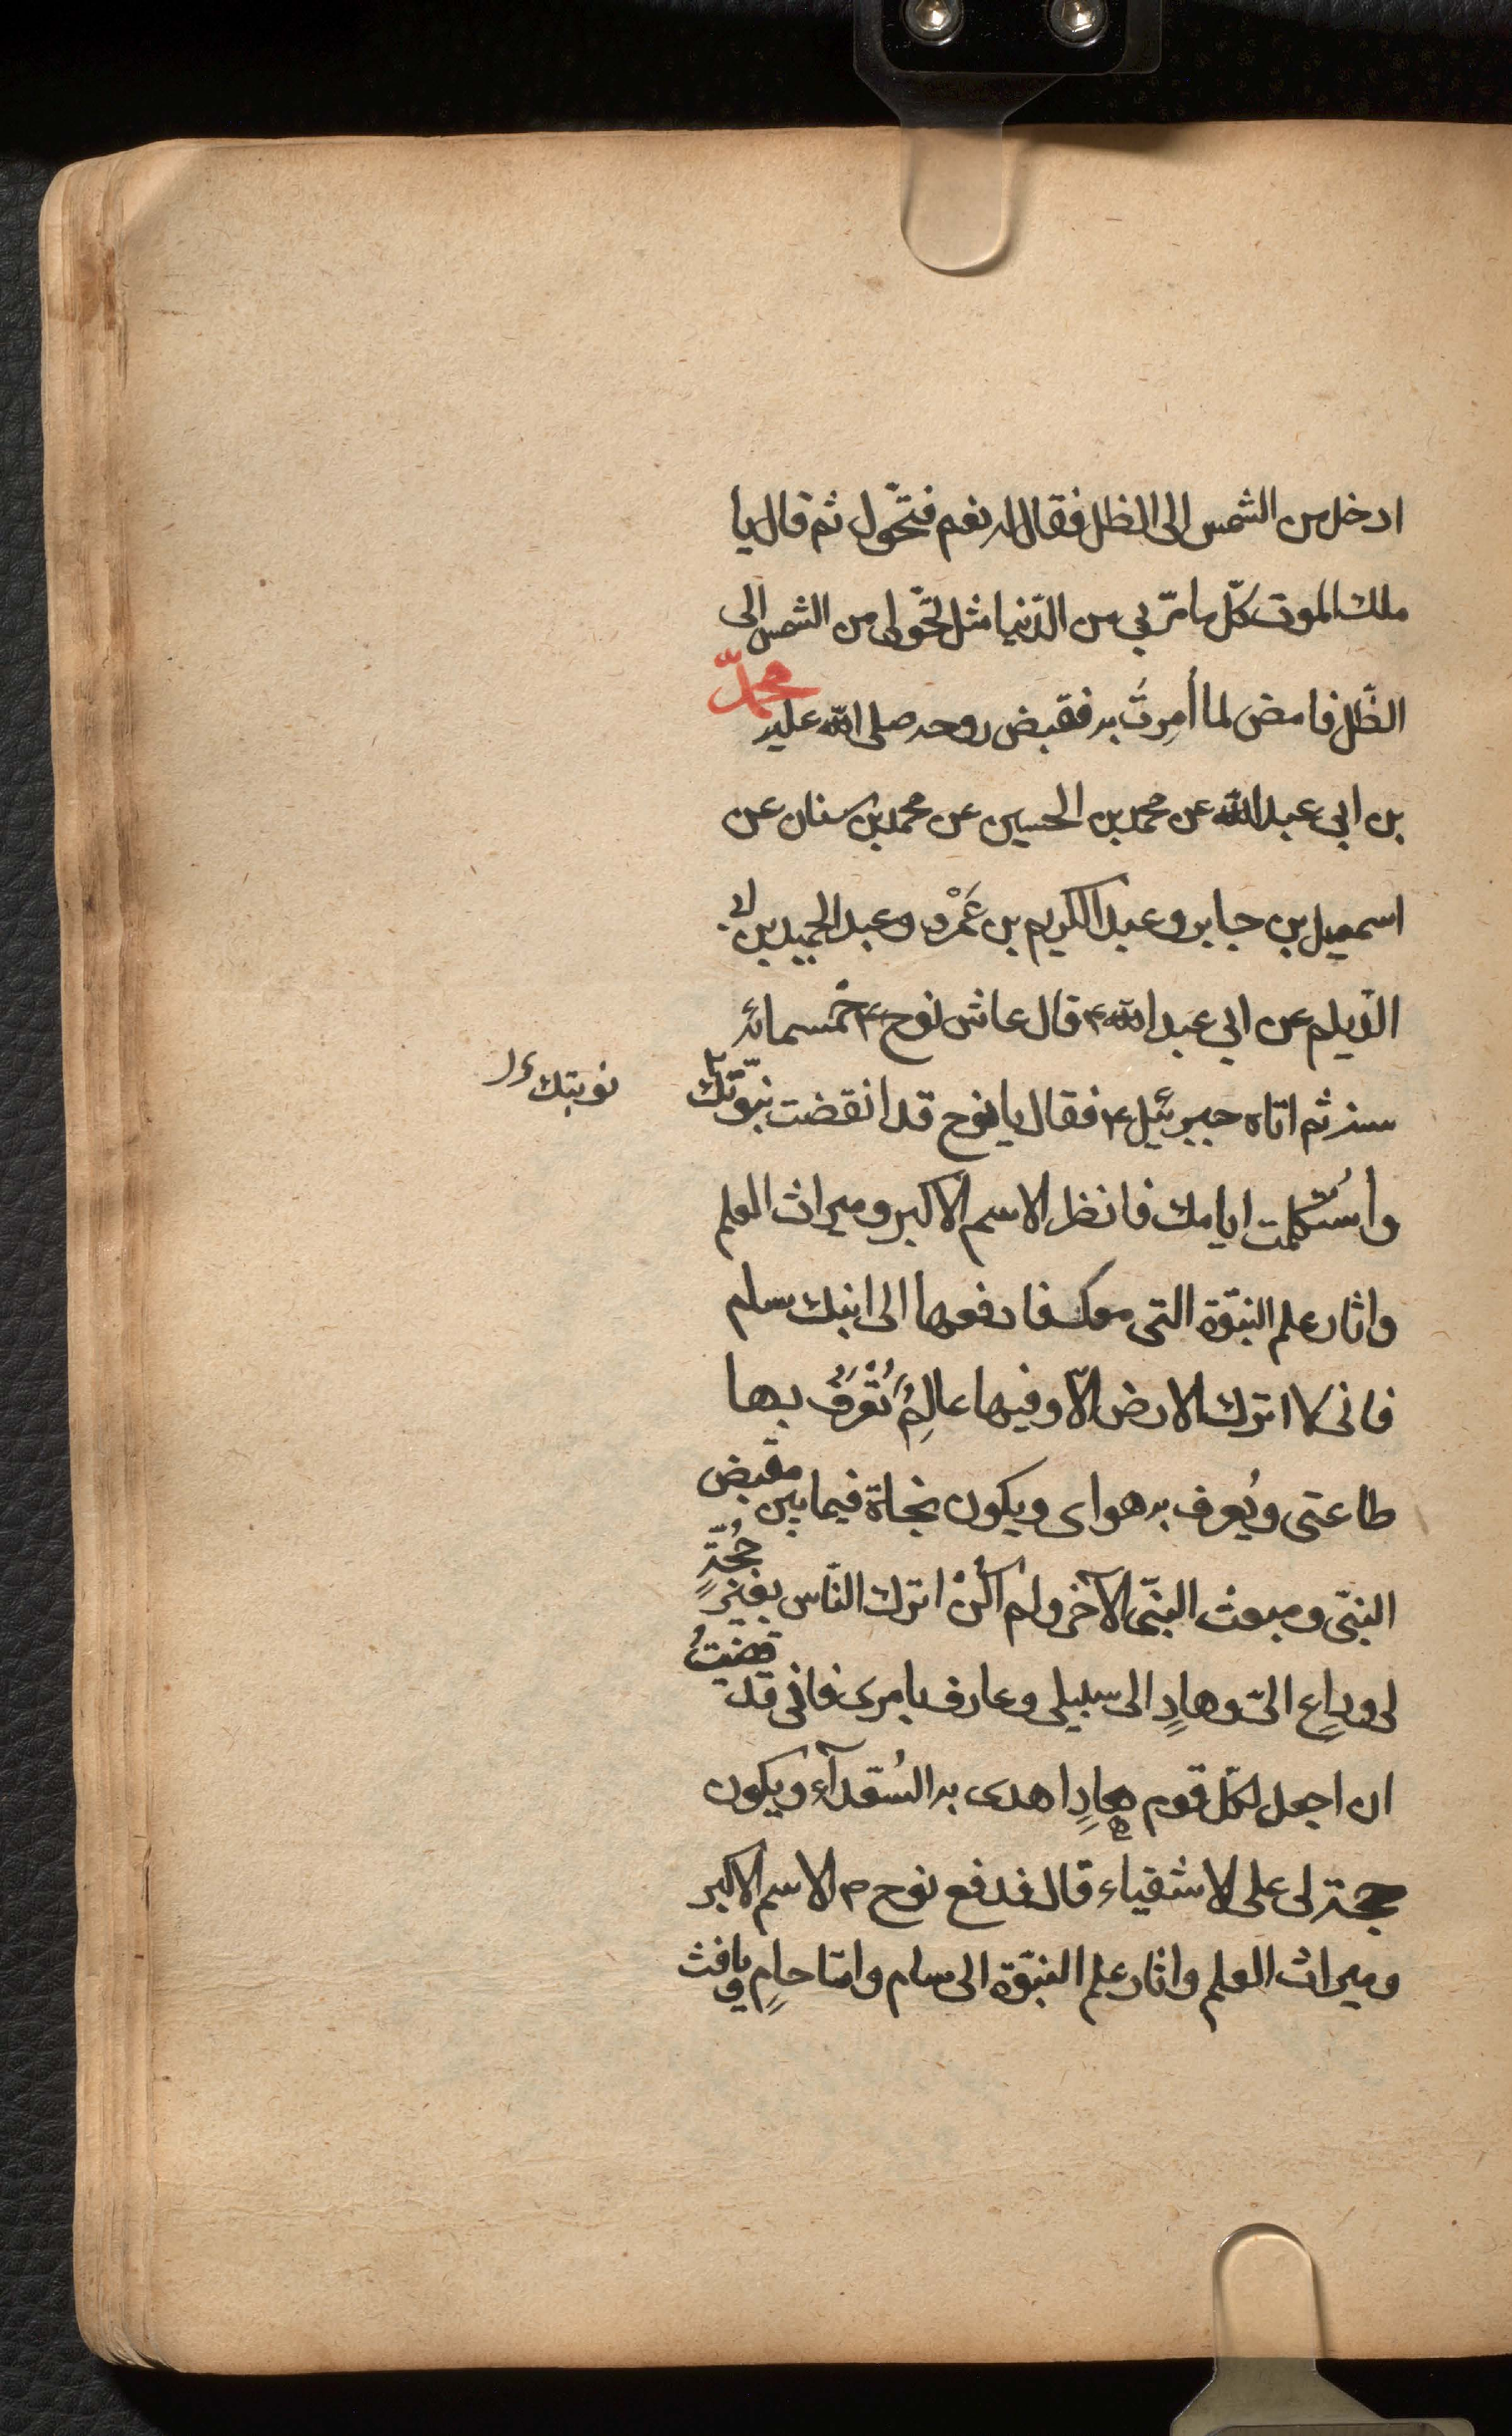 ادخل من الشمس الى الظل فقال له نعم فتحّول ثم قال يا
ملك الموت كلّ ما مرّ بي من الدّنيا مثل تحّولى من الشمس الى
الظّل فامض لما اُمِرتُ به فقبض روحه صلى الله عليه محمدّ
بن ابى عبد الله عن محمد بن الحسين عن محمد بن سنان عن
اسمعيل بن جابر و عبد الكريم بن عَمْرو و عبد الحميد بن ابى
الدّيلم عن ابى عبد الله ع قال عاش نوح ع خمسمائة
سنة ثم اتاه جبرئيل ع فقال يا نوح قد انقضت نبّوتك
نوبتك
واُستكملت ايامك فانظر الاسم الاكبر و ميراث العلم
واثار علم النبّوة التى معك فادفعها الى ابنك سام
فانى لا اترك الارض الّا وفيها عالِمٌ تُعْرَفُ بها
طاعتى و يُعرف به هواى و يكون نجاة فيما بين مقبض
النبّى و مبعث النبّى الآخر و لم اكُنْ اترك النّاس بغير حُجّةٍ
لى و داعٍ الىّ و هادٍ الى سبيلى و عارف بامرى فانى قد قضيتُ
ان اجعل لكلّ قوم هادٍ اهدى به السُعَدآء و يكون
حجة لى على الاشقياء قال فدفع نوح ع الاسم الاكبر
و ميراث العلم و اثار علم النبّوة الى سام و امّا حامٍ و يافث